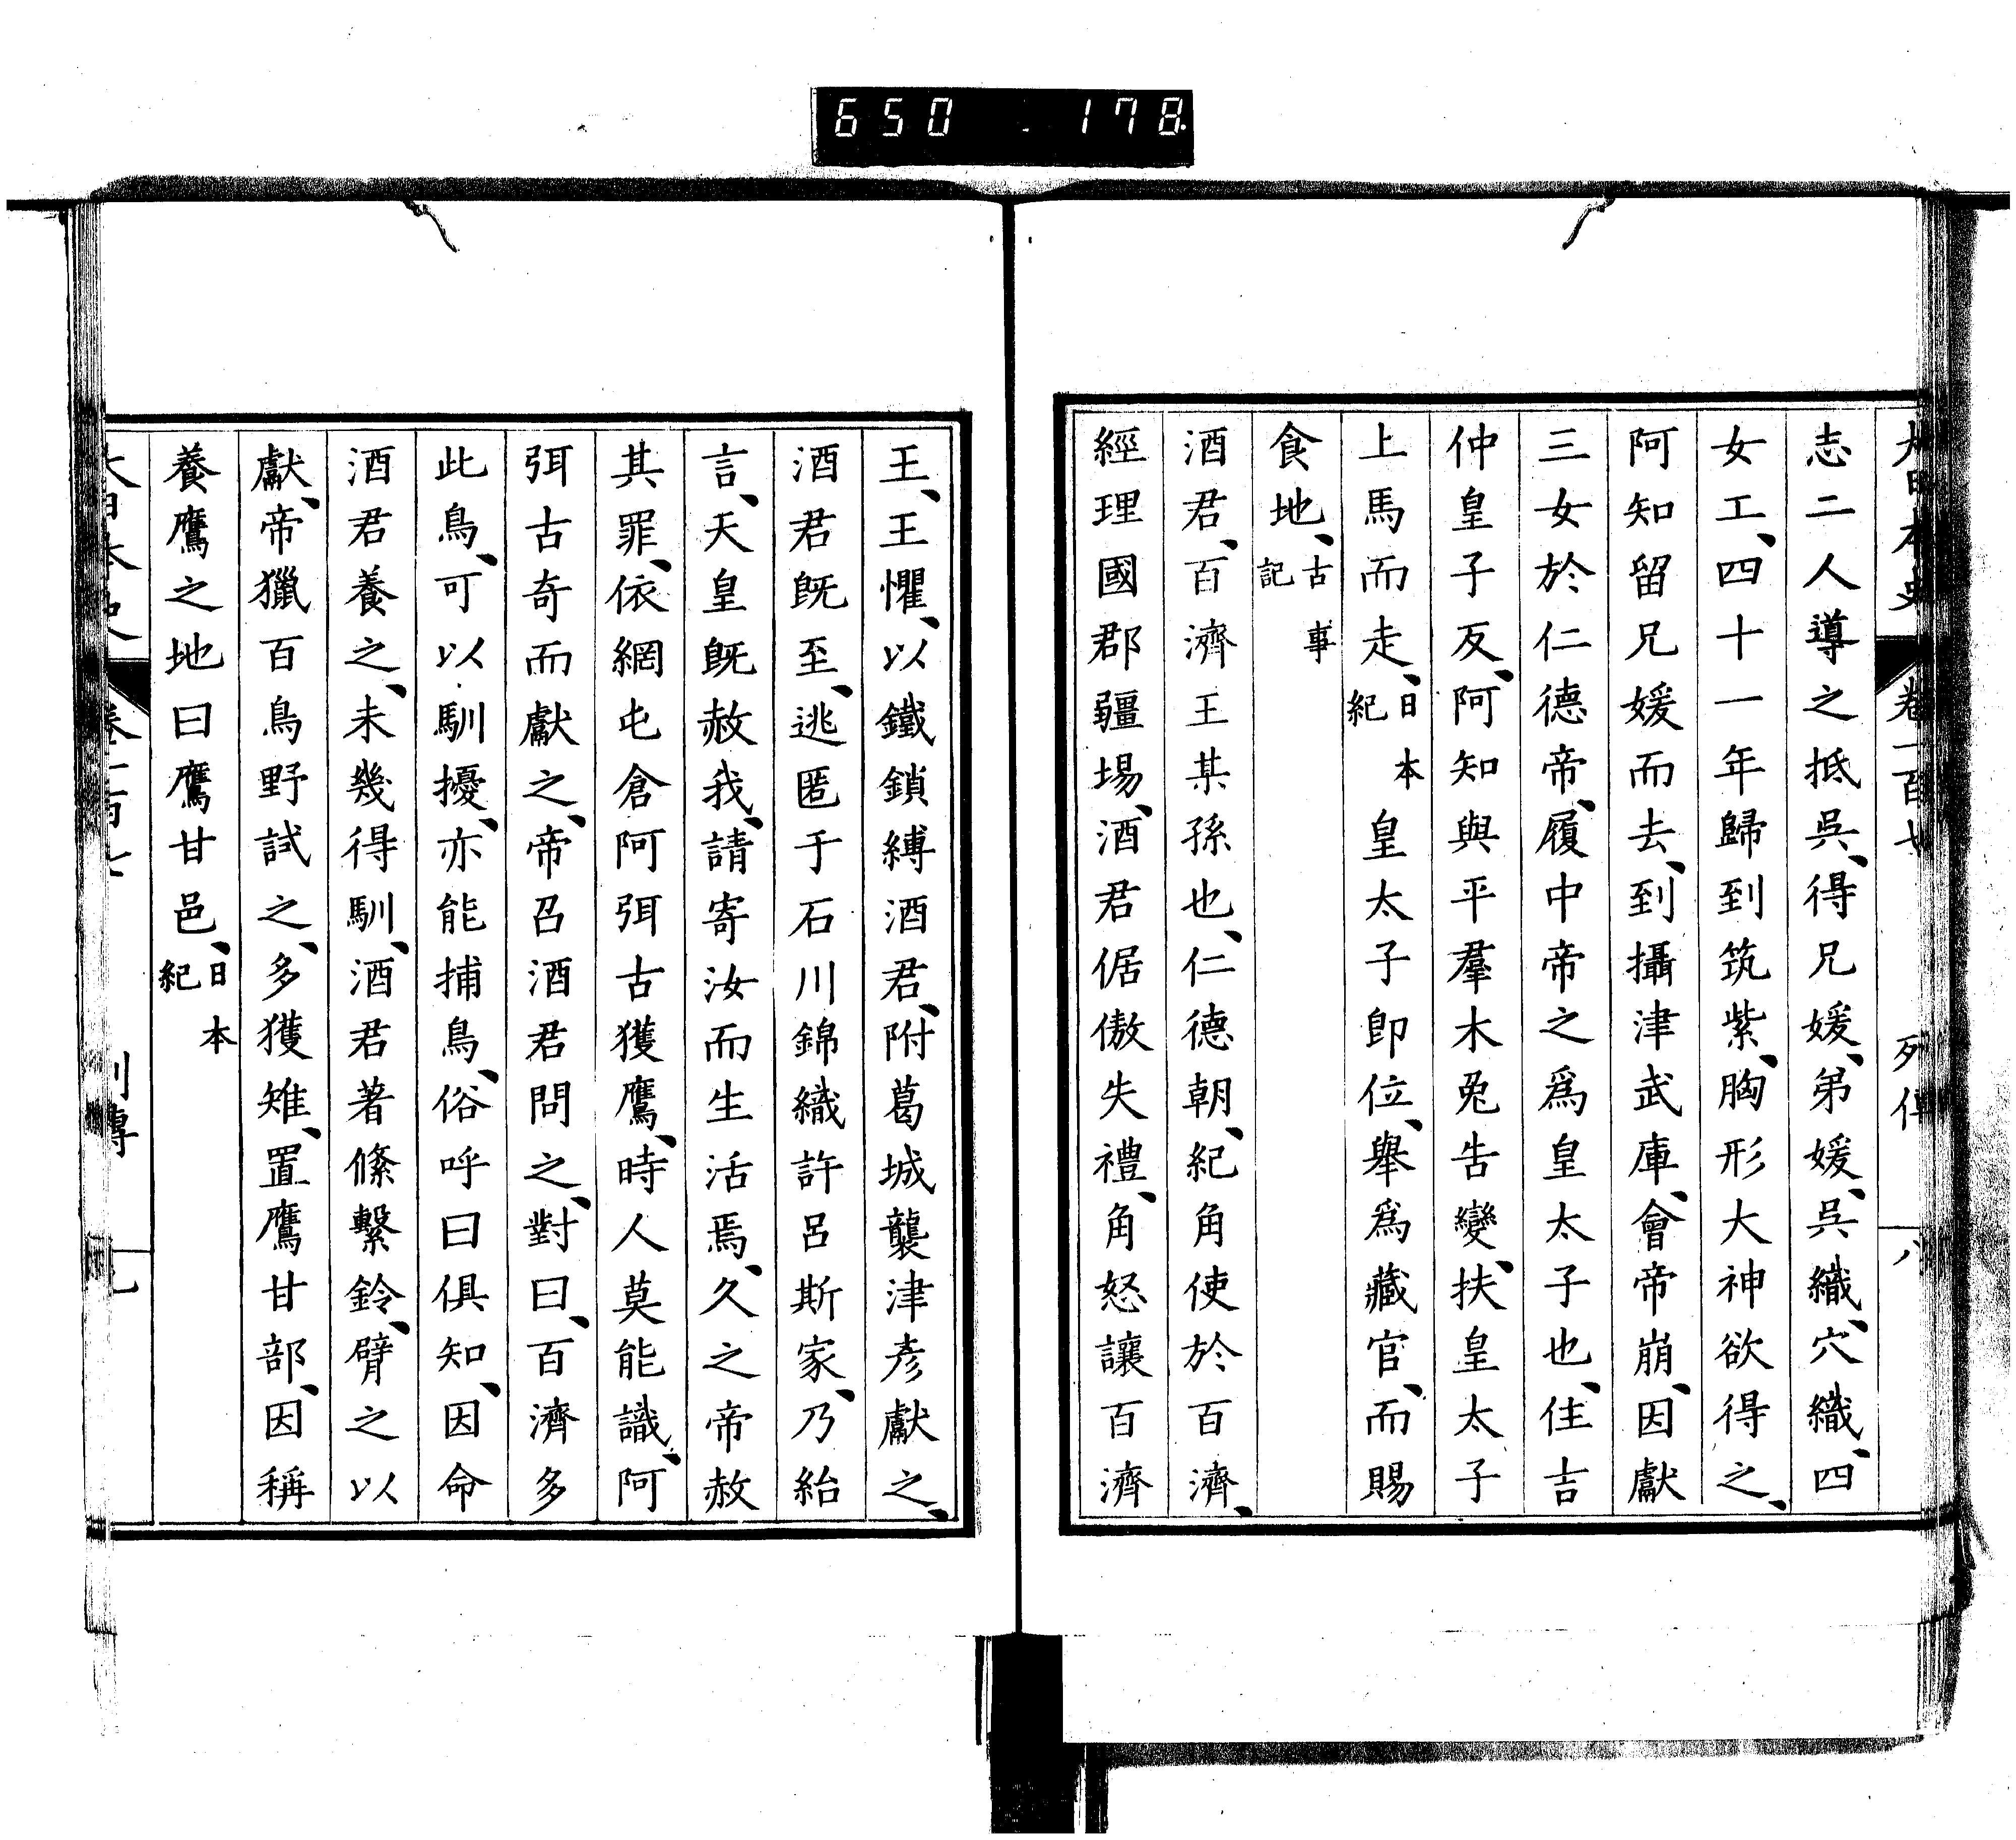 650 178
大日本史 卷一百七 列傳 八
志二人導之抵吳、得兄媛、弟媛、吳織、穴織、四
女工、四十一年歸到筑紫、胸形大神欲得之、
阿知留兄媛而去、到攝津武庫、會帝崩、因獻
三女於仁德帝、履中帝之爲皇太子也、住吉
仲皇子反、阿知與平羣木菟告變、扶皇太子
上馬而走、日本紀 皇太子卽位、舉爲藏官、而賜
食地、古事記
酒君、百濟王某孫也、仁德朝、紀角使於百濟、
經理國郡疆場、酒君倨傲失禮、角怒讓百濟
王、王懼、以鐵鎖縛酒君、附葛城襲津彥獻之、
酒君旣至、逃匿于石川錦織許呂斯家、乃紿
言、天皇旣赦我、請寄汝而生活焉、久之帝赦
其罪、依網屯倉阿弭古獲鷹、時人莫能識、阿
弭古奇而獻之、帝召酒君問之、對曰、百濟多
此鳥、可以馴擾、亦能捕鳥、俗呼曰俱知、因命
酒君養之、未幾得馴、酒君著絛繫鈴、臂之以
獻、帝獵百鳥野試之、多獲雉、置鷹甘部、因稱
養鷹之地曰鷹甘邑、日本紀
大日本史 卷一百七 列傳 九